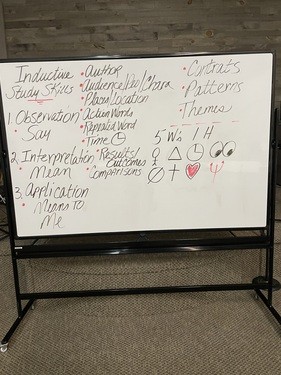 Inductive
Study Skills
1. Observation
Say
2. Interpretation
Mean
3. Application
Means To
Me
• Author
• Audience/Ppl/Chara
• Places/Location
• Action Words
• Repeated Word
• Time
• Results/
Outcomes
• Comparisons
• Contrats
• Patterns
Themes
5 W's 1 H